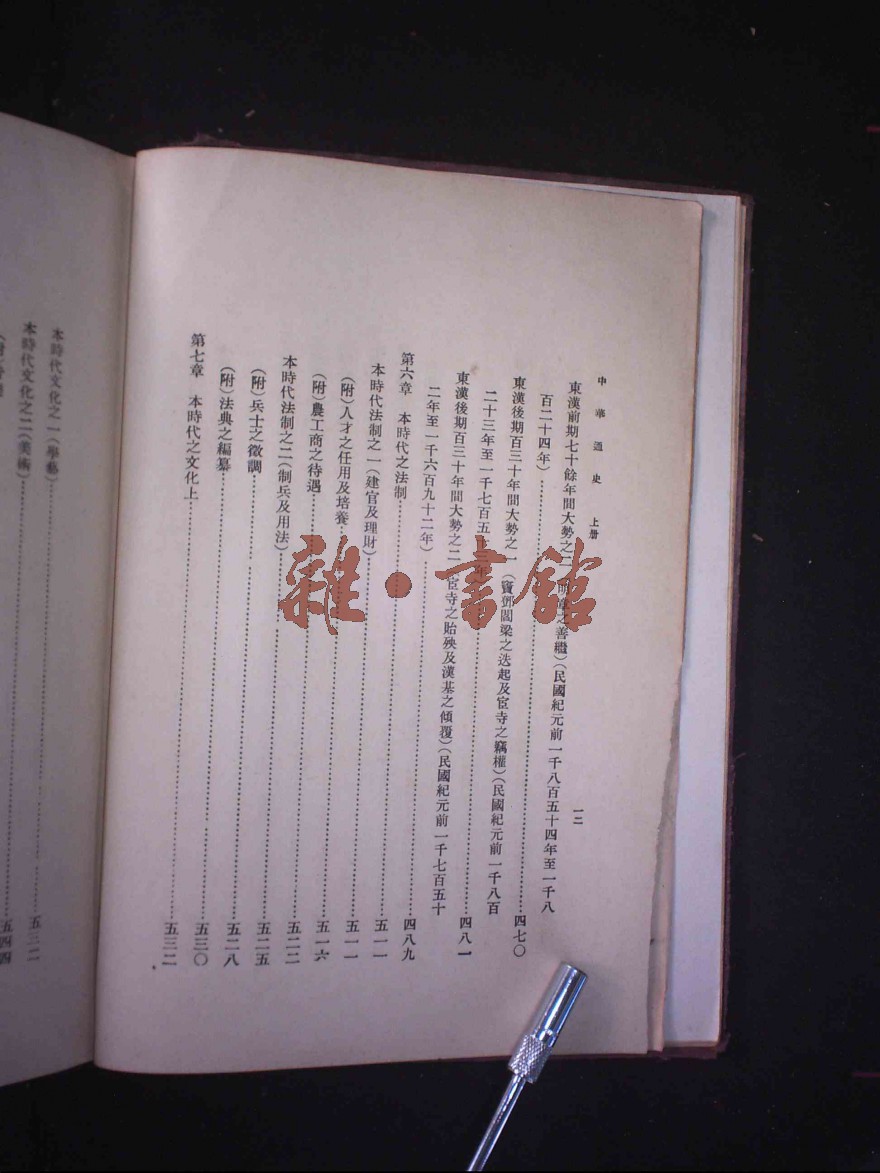 中華通史 上册 一二
東漢前期七十餘年間大勢之二(明章之善繼)(民國紀元前一千八百五十四年至一千八
百二十四年)……四七〇
東漢後期百三十年間大勢之一(竇鄧閻梁之迭起及宦寺之竊權)(民國紀元前一千八百
二十三年至一千七百五十三年)……四八一
東漢後期百三十年間大勢之二(宦寺之貽殃及漢基之傾覆)(民國紀元前一千七百五十
二年至一千六百九十二年)……四八九
第六章 本時代之法制……五一一
本時代法制之一(建官及理財)……五一一
(附)人才之任用及培養……五一六
(附)農工商之待遇……五二二
本時代法制之二(制兵及用法)……五二五
(附)兵士之徵調……五二八
(附)法典之編纂……五三〇
第七章 本時代之文化上……五三二
本時代文化之一(學藝)……五三二
本時代文化之二(美術)……五四四
雜·書館